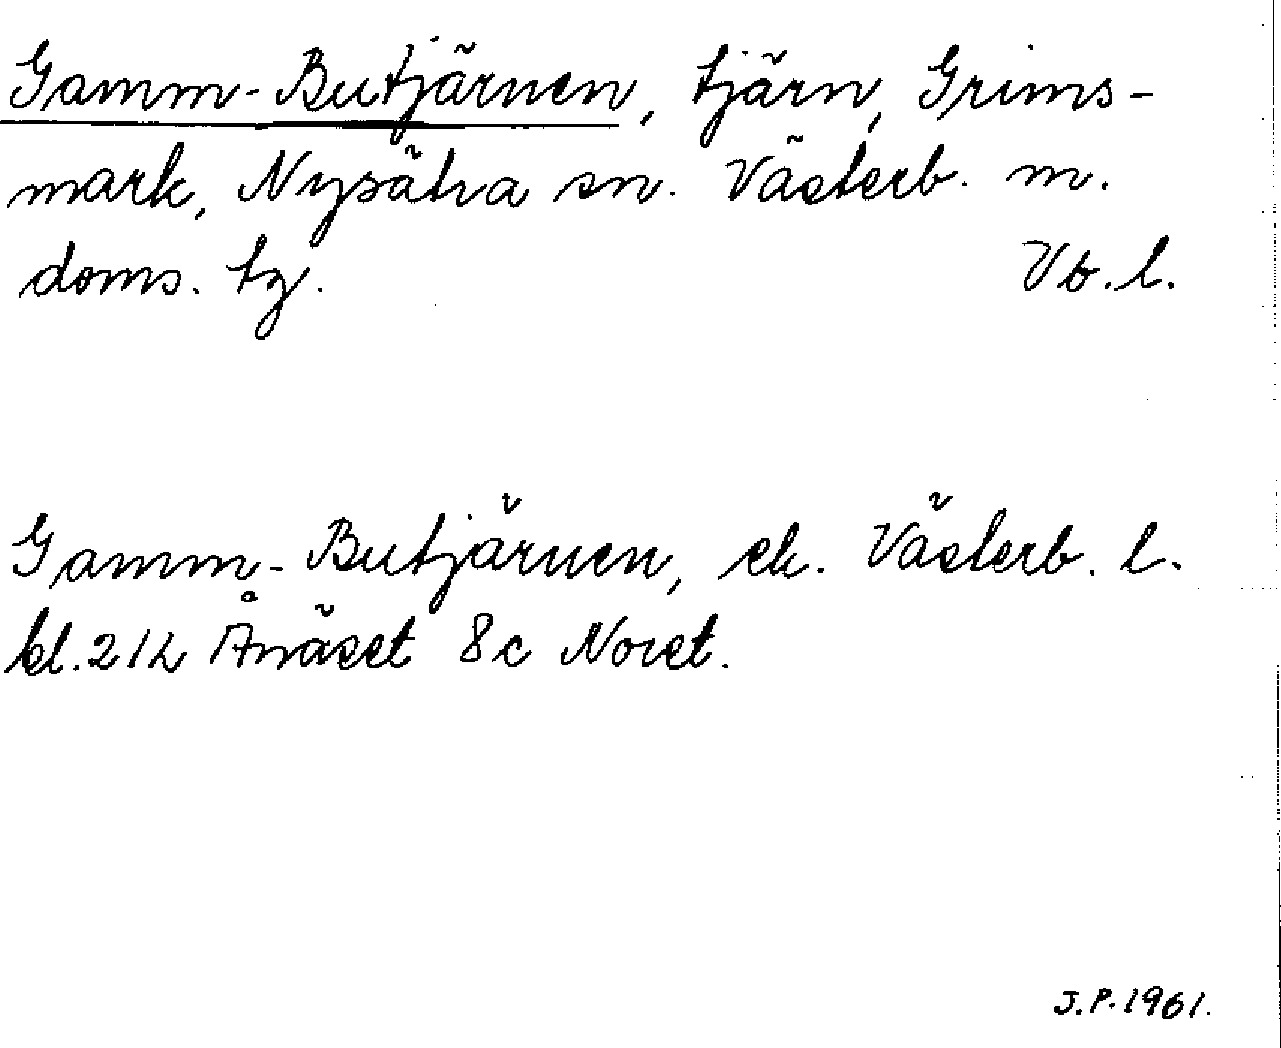 Gamm-Butjärnen, tjärn, Grims-
mark, Nysätra sn. Västerb. m.
doms. tg. Vb. l.
Gamm-Butjärnen, ek. Västerb. l.
bl. 21L Ånäset 8c Noret.
J.P. 1961.